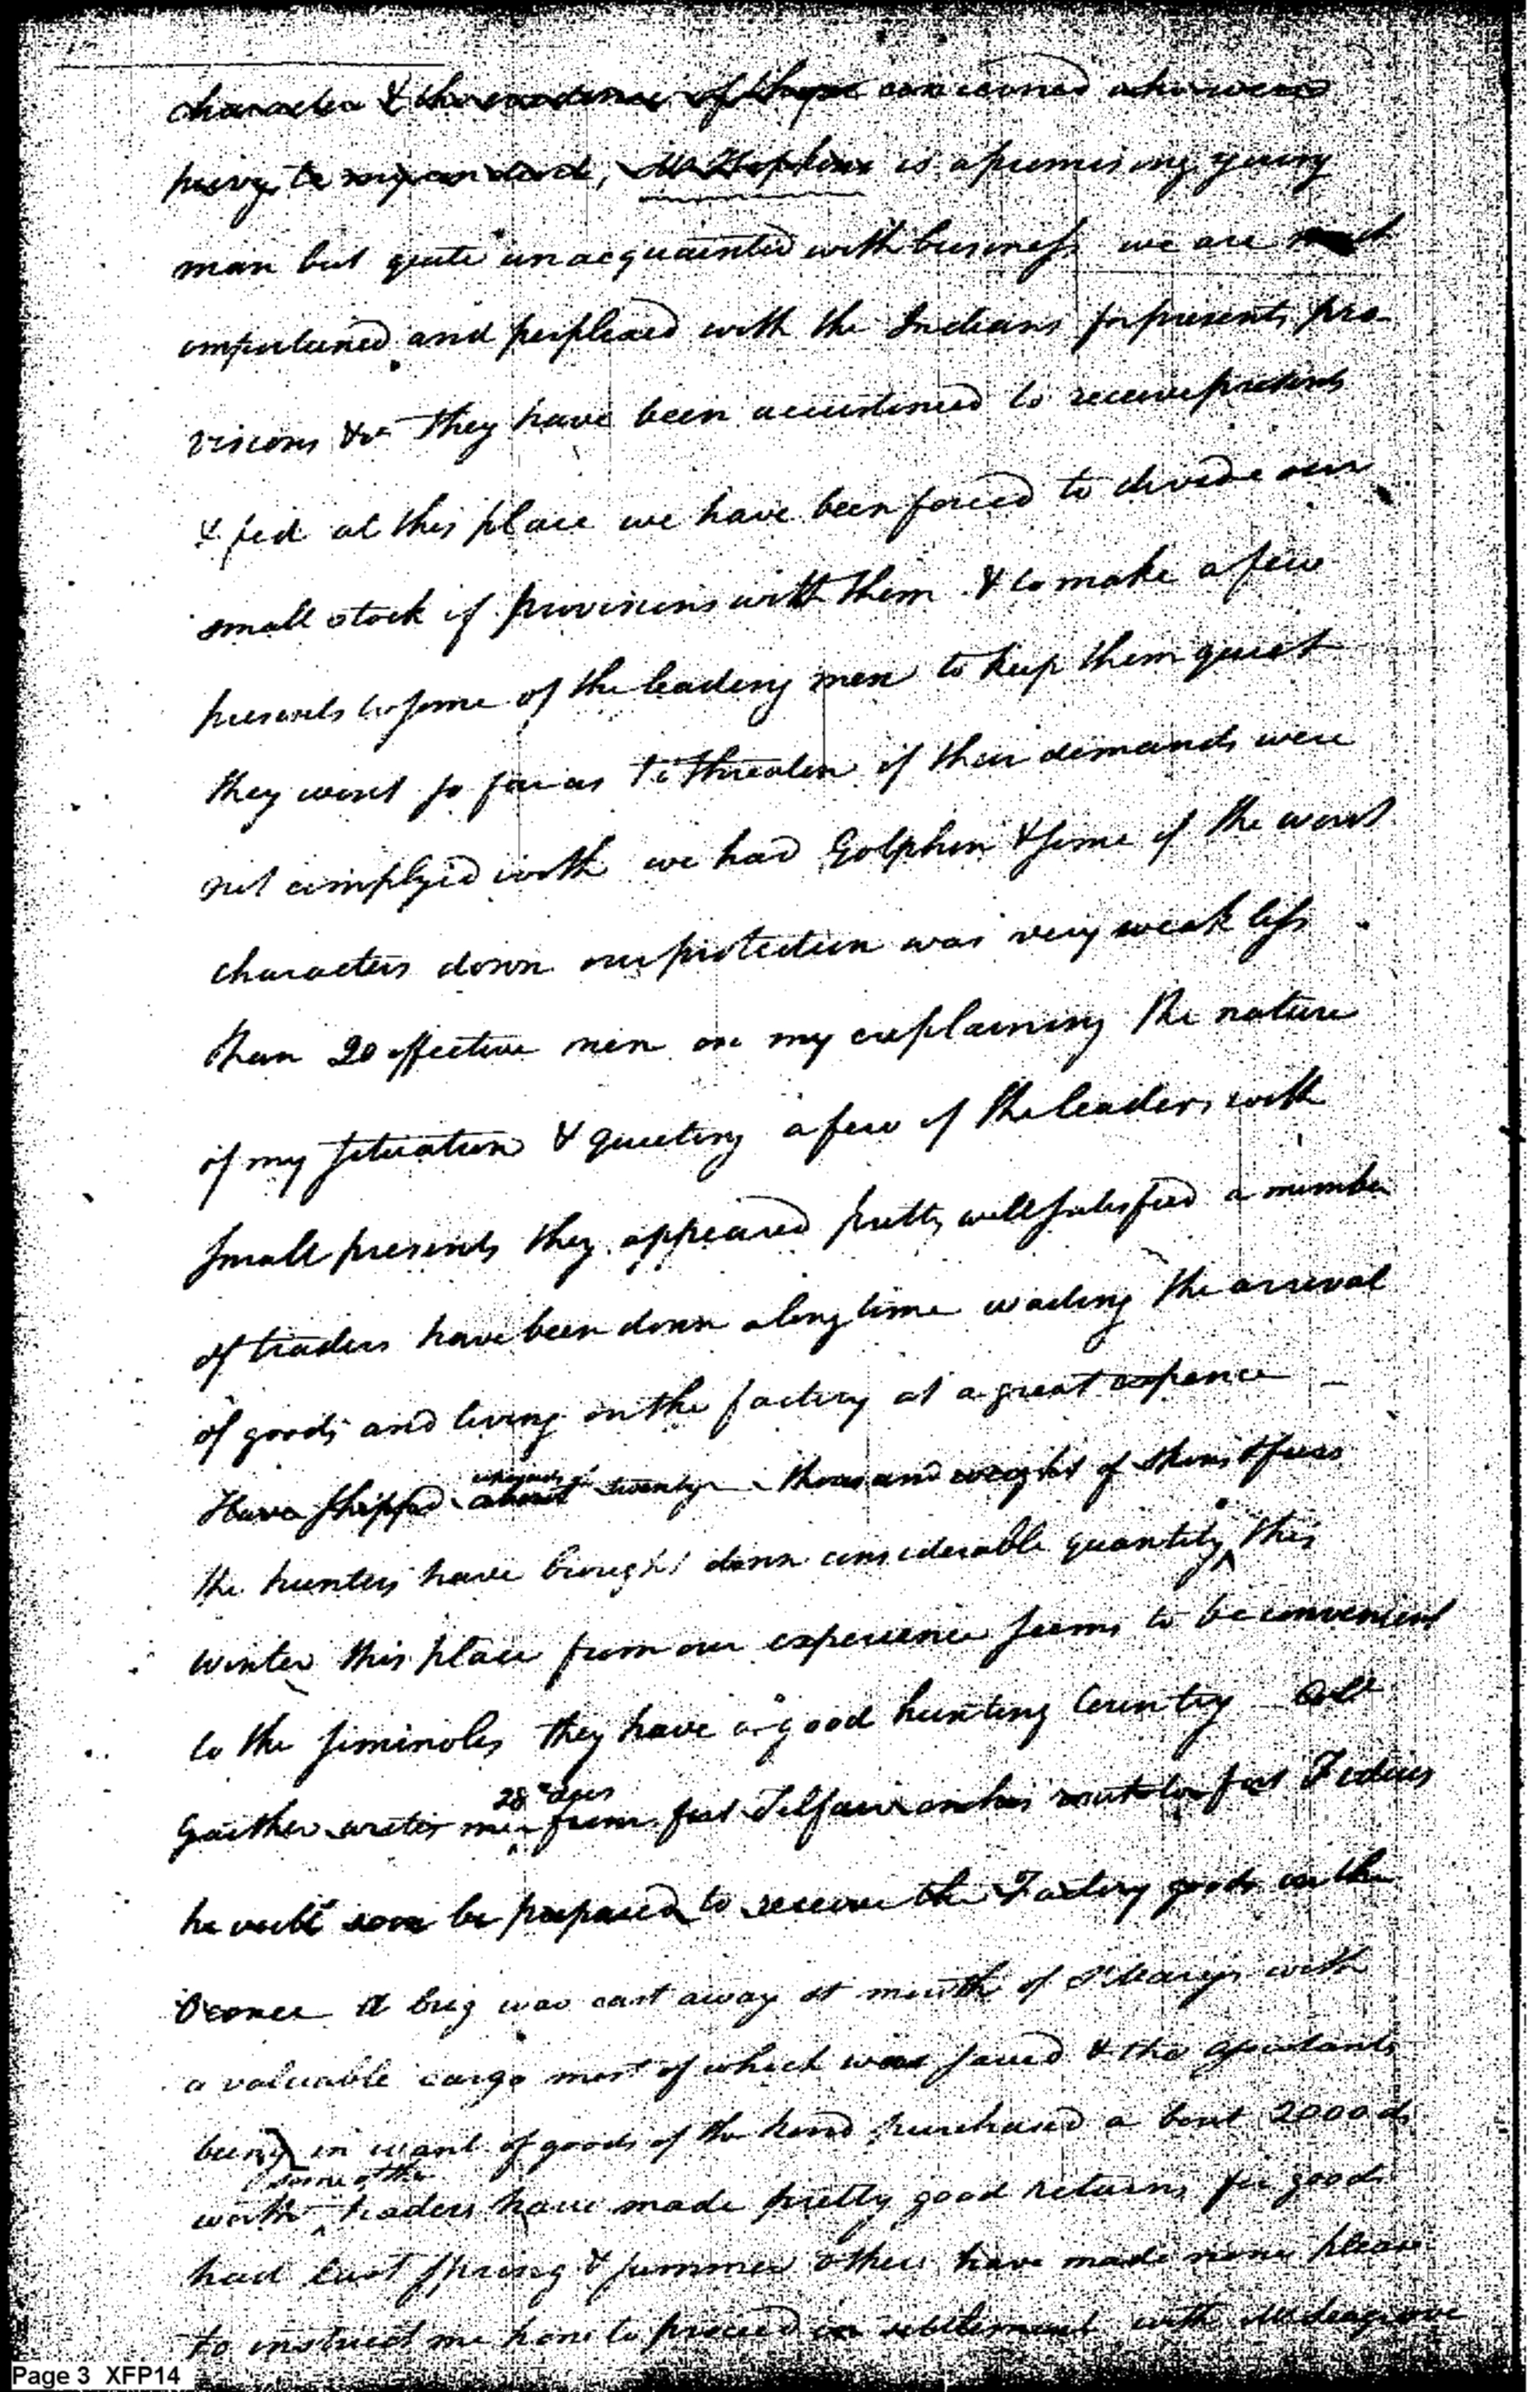 character & the evidence of those concerned who were
privy to my conduct, Mr Hopkins is a promising young
man but quite unacquainted with business we are
importuned and perplexed with the Indians for presents pro
visions &c they have been accustomed to receive presents
& fed at this place we have been forced to divide our
small stock of provisions with them & to make a few
presents to some of the leading men to keep them quiet
they went so far as to threaten if their demands were
not complyed with we had Golphin & some of the worst
characters down our protection was very weak less
than 20 effective men on my explaining the nature
of my situation & quieting a few of the leaders with
small presents they appeared pretty well satisfied a number
of traders have been down a long time waiting the arrival
of goods and living on the factory at a great expence
upwards of
Have shipped about twenty thousand weight of skins & furs
the hunters have brought down considerable quantity this
winter this place from our experience seems to be convenient
to the siminoles they have a good hunting Country Coll
28th Decr
Gaither writes me from fort Telfair on his rout to fort Fidius
he will soon be prepared to receive the Factory goods on the
Oconee A brig was cast away at mouth of St Marys with
a valuable cargo most of which was saved & the
being in want of goods of the kind purchased a bout 2000 ds
some of the
worth traders have made pretty good returns for goods
had last spring & summer others have made none please
to instruct me how to proceed in settlement with Mr Seagrove
Page 3 XFP14